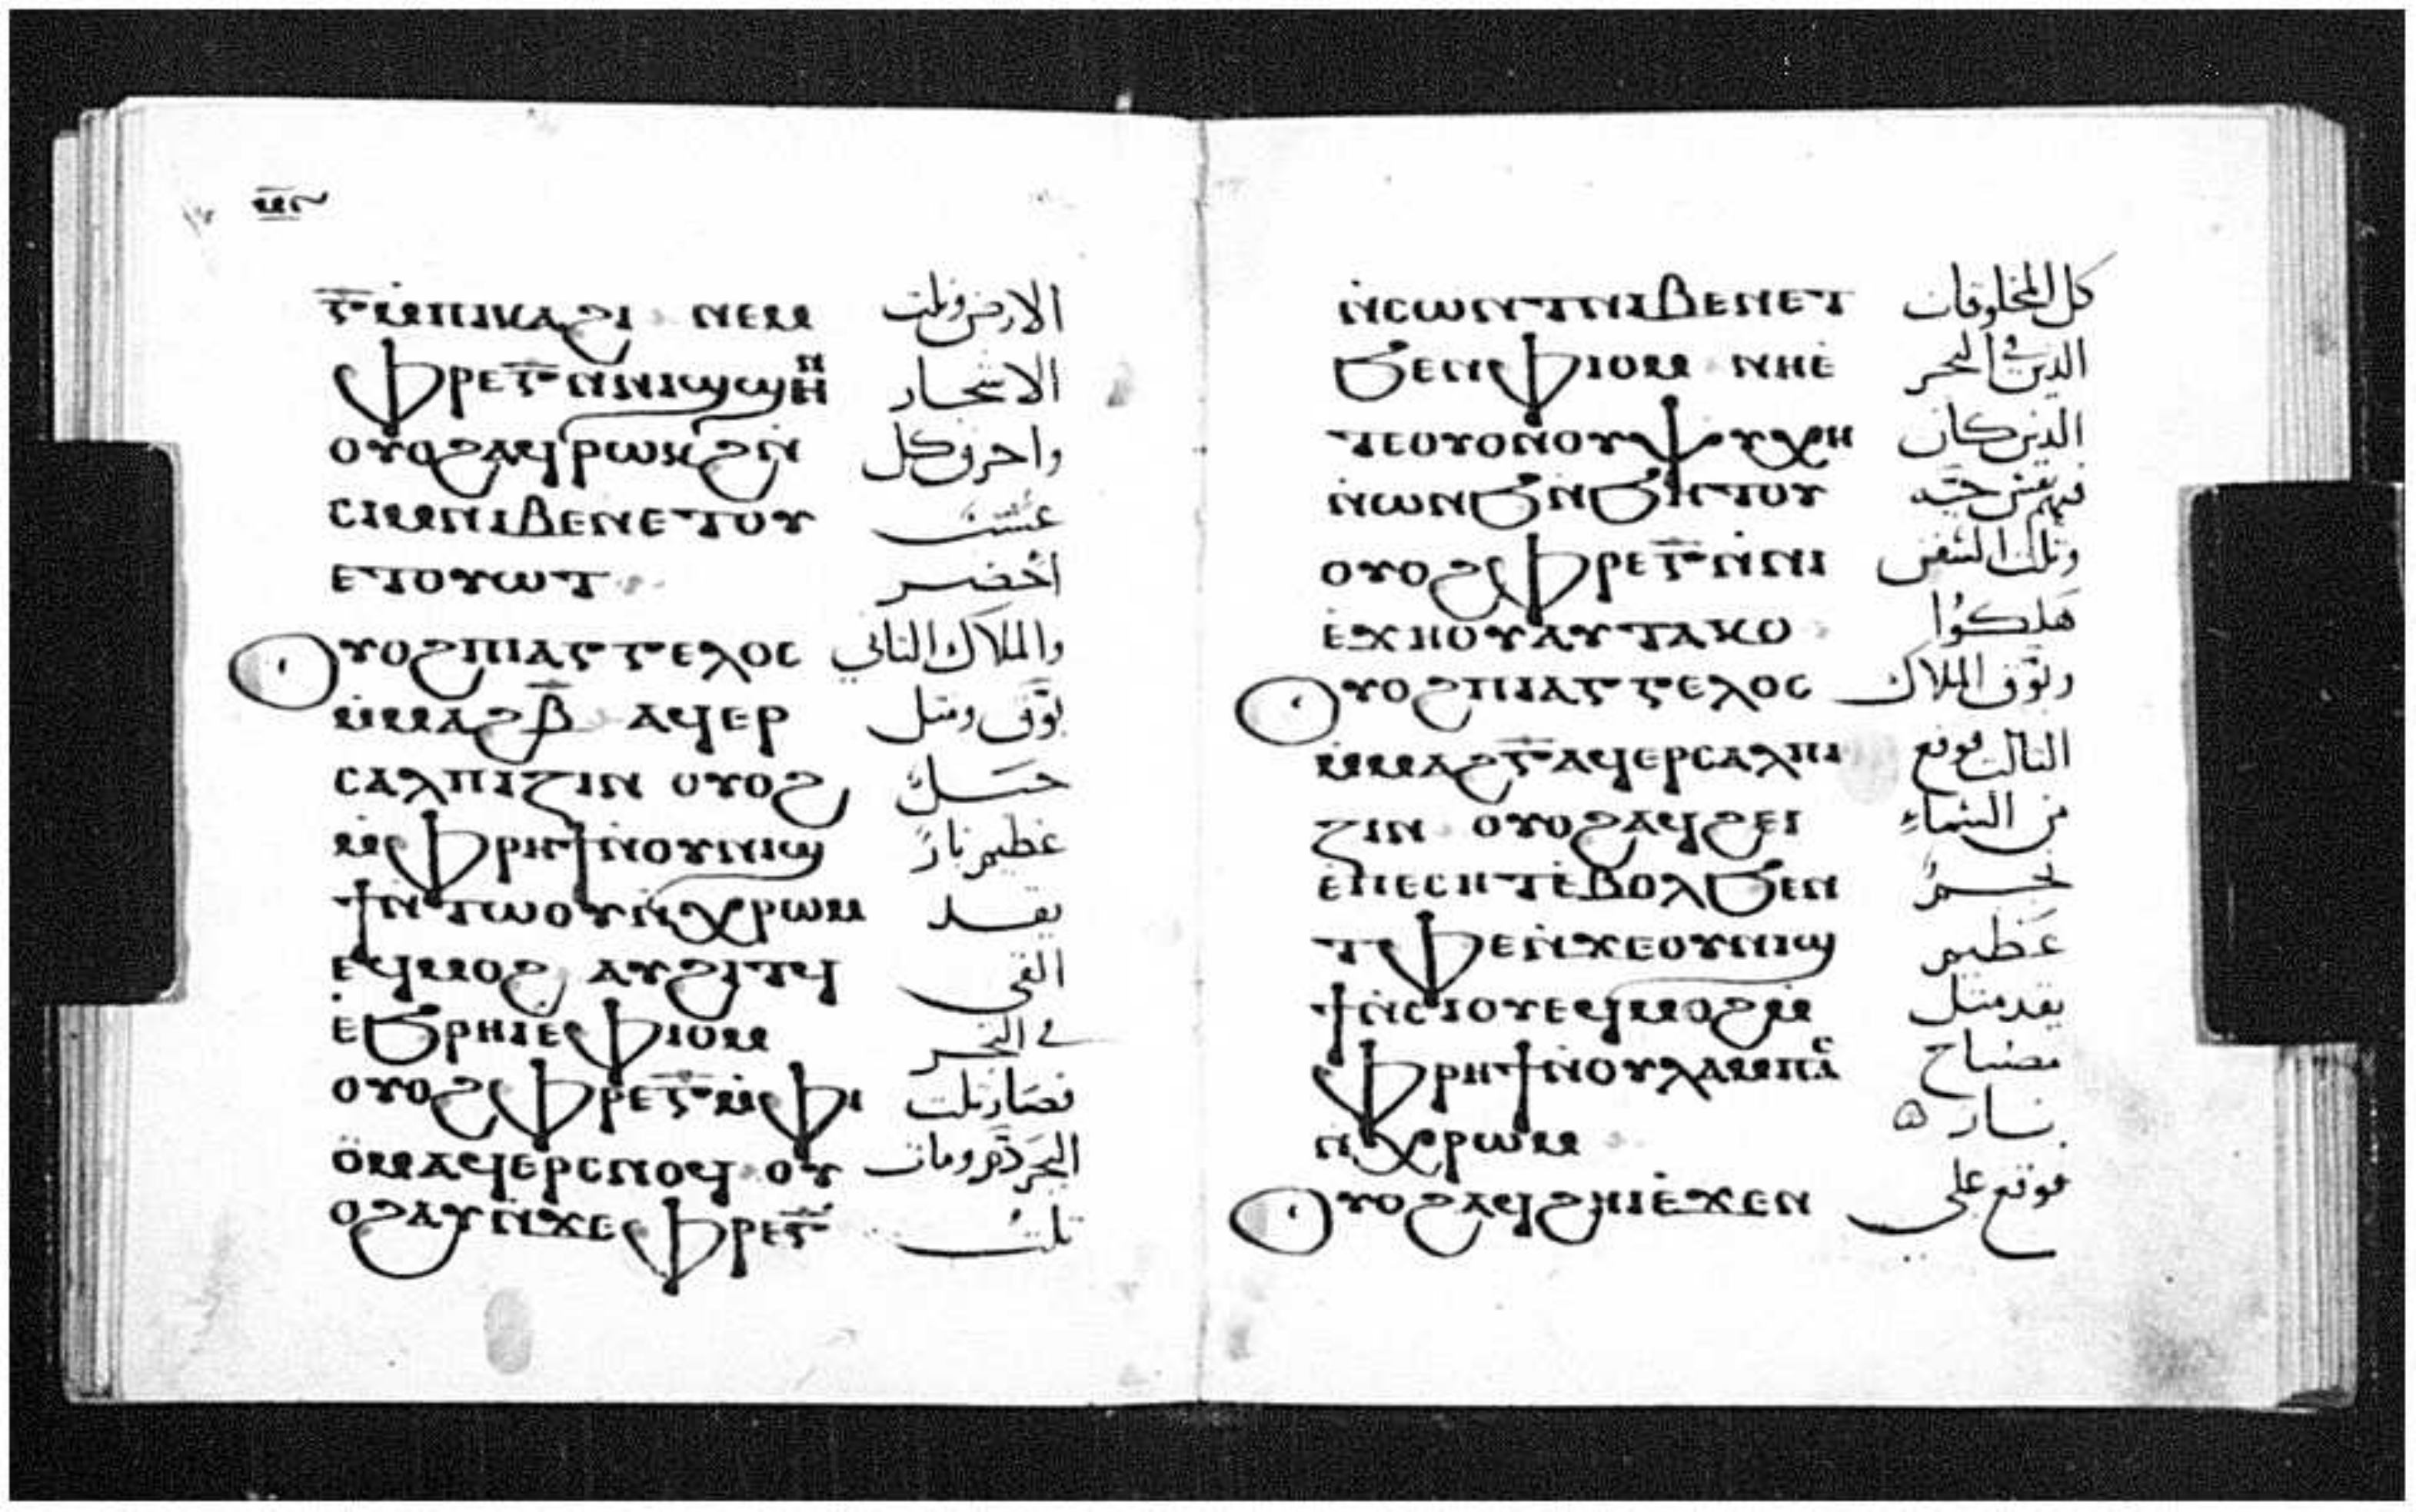 ⲅ̅ ⲙ̀ⲡⲓⲕⲁϩⲓ ⲛⲉⲙ الارض وثلث
ⲫⲣⲉⲅ̅ ⲛ̀ⲛⲓϣϣⲏⲛ الاشجار
ⲟⲩⲟϩ ⲁϥⲣⲱⲕϩ ⲛ̀ واحرق كل
ⲥⲓⲙ ⲛⲓⲃⲉⲛ ⲉⲧⲟⲩ عشب
ⲉⲧⲟⲩⲱⲧ اخضر
ⲟⲩⲟϩ ⲡⲓⲁⲅⲅⲉⲗⲟⲥ والملاك الثاني
ⲙ̀ⲙⲁϩⲃ̅ ⲁϥⲉⲣ بوق ومثل
ⲥⲁⲗⲡⲓⲍⲓⲛ ⲟⲩⲟϩ جبل
ⲙ̀ⲫⲣⲏϯ ⲛ̀ⲟⲩⲛⲓϣ عظيم نارًا
ϯ ⲛ̀ⲧⲱⲟⲩ ⲛ̀ⲭⲣⲱⲙ يقد
ⲉϥⲙⲟϩ ⲁⲩϩⲓⲧϥ القى
ⲉ̀ϧⲣⲏⲓ ⲉ̀ⲫⲓⲟⲙ في البحر
ⲟⲩⲟϩ ⲫⲣⲉⲅ̅ ⲙ̀ⲫⲓ فصار ثلث
ⲟⲙ ⲁϥⲉⲣⲥⲛⲟϥ ⲟⲩ البحر دم ومات
ⲟϩ ⲁⲩ ⲛ̀ϫⲉ ⲫⲣⲉⲅ̅ ثلث
ⲛ̀ⲥⲱⲛⲧ ⲛⲓⲃⲉⲛ ⲉⲧ كل المخلوقات
ϧⲉⲛ ⲫⲓⲟⲙ ⲛⲏⲉ̀ الذين في البحر
ⲧⲉ ⲟⲩⲟⲛ ⲟⲩⲯⲩⲭⲏ الذين كان
ⲛ̀ⲱⲛϧ ⲛ̀ϧⲏⲧⲟⲩ فيهم نفس حيه
ⲟⲩⲟϩ ⲫⲣⲉⲅ̅ ⲛ̀ⲛⲓ وثلث السفن
ⲉ̀ϫⲏⲟⲩ ⲁⲩⲧⲁⲕⲟ هلكوا
ⲟⲩⲟϩ ⲡⲓⲁⲅⲅⲉⲗⲟⲥ وبوق الملاك
ⲙ̀ⲙⲁϩⲅ̅ ⲁϥⲉⲣⲥⲁⲗⲡⲓ الثالث فوقع
ⲍⲓⲛ ⲟⲩⲟϩ ⲁϥϩⲉⲓ من السماء
ⲉ̀ⲡⲉⲥⲏⲧ ⲉ̀ⲃⲟⲗ ϧⲉⲛ نجمًا
ⲧⲫⲉ ⲛ̀ϫⲉ ⲟⲩⲛⲓϣ عظيم
ϯ ⲛ̀ⲥⲓⲟⲩ ⲉϥⲙⲟϩ ⲙ̀ يقد مثل
ⲫⲣⲏϯ ⲛ̀ⲟⲩⲗⲁⲙⲡⲁⲥ مصباح
ⲛ̀ⲭⲣⲱⲙ نار
ⲟⲩⲟϩ ⲁϥϩⲏⲓ ⲉ̀ϫⲉⲛ فوقع على